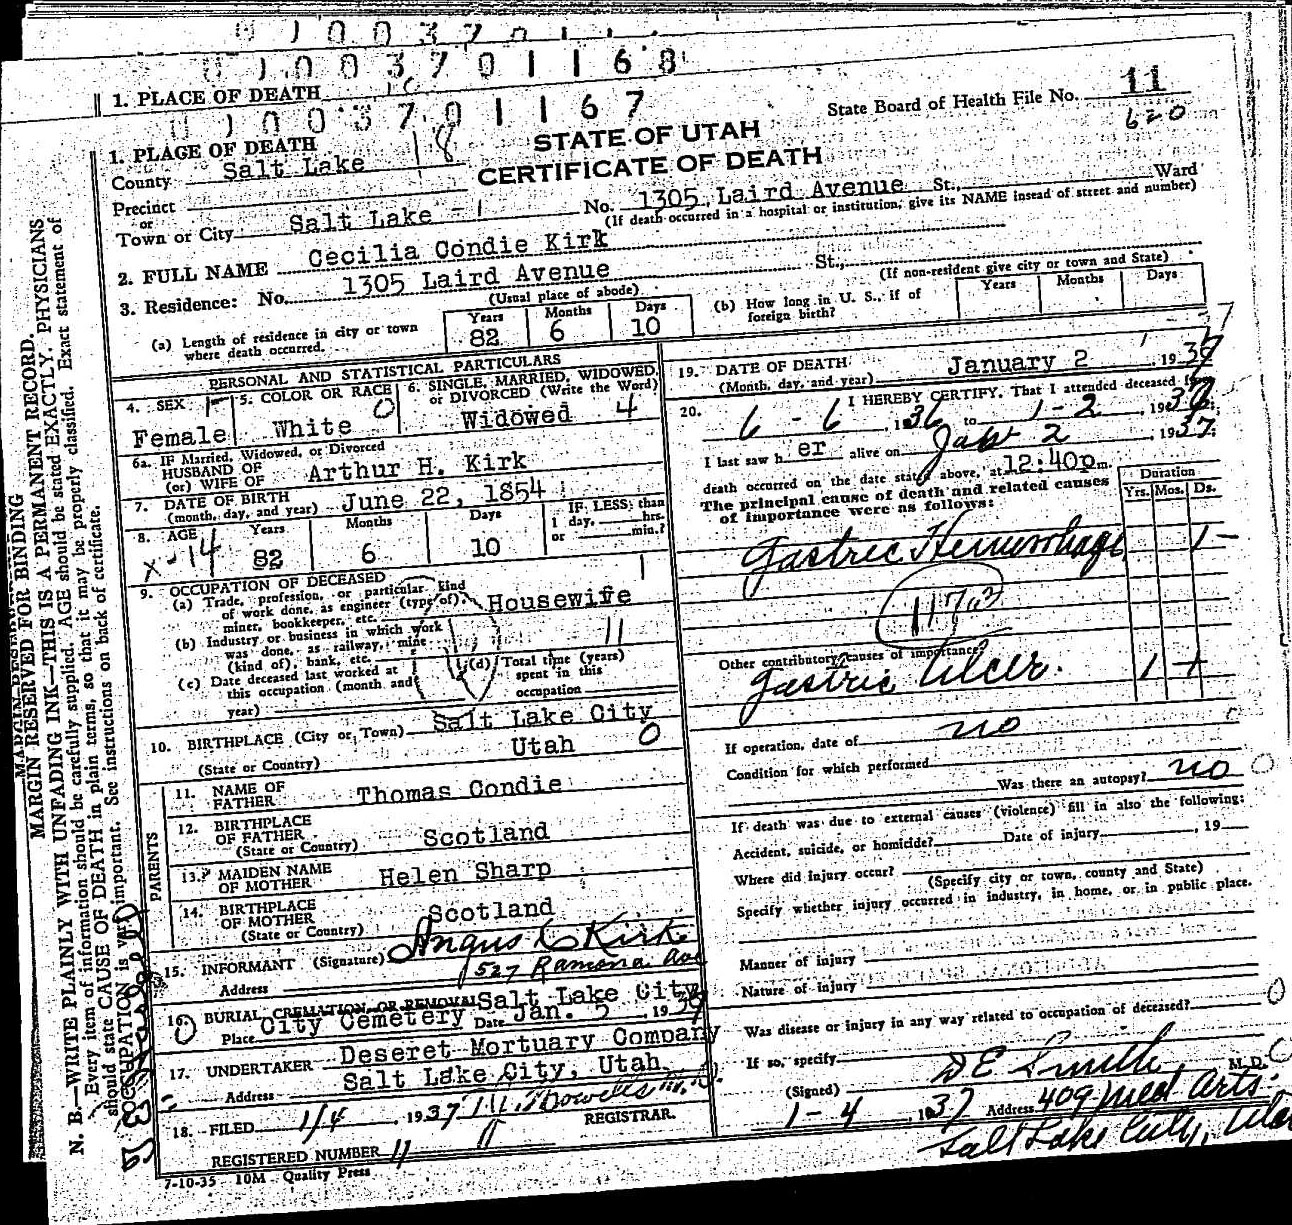 01003701168
1. PLACE OF DEATH
01003701167
State Board of Health File No. 11
620
STATE OF UTAH
CERTIFICATE OF DEATH
1. PLACE OF DEATH 18
County Salt Lake
Precinct
or
Town or City Salt Lake - 1 No. 1305 Laird Avenue St., Ward
(If death occurred in a hospital or institution, give its NAME insead of street and number)
2. FULL NAME Cecilia Condie Kirk
3. Residence: No. 1305 Laird Avenue St.,
(Usual place of abode)
(If non-resident give city or town and State)
(a) Length of residence in city or town where death occurred.
Years 82 Months 6 Days 10
(b) How long in U. S., if of foreign birth?
Years Months Days
PERSONAL AND STATISTICAL PARTICULARS
4. SEX Female
5. COLOR OR RACE White 0
6. SINGLE, MARRIED, WIDOWED, or DIVORCED (Write the Word)
Widowed 4
6a. If Married, Widowed, or Divorced
HUSBAND OF
(or) WIFE OF Arthur H. Kirk
7. DATE OF BIRTH
(month, day, and year) June 22, 1854
8. AGE Years 82 Months 6 Days 10
IF LESS than
1 day, hrs.
or min.?
X-14
9. OCCUPATION OF DECEASED
(a) Trade, profession, or particular kind
of work done, as engineer (type of),
miner, bookkeeper, etc. Housewife
(b) Industry or business in which work
was done, as railway, mine
(kind of), bank, etc. 11
(c) Date deceased last worked at
this occupation (month and
year)
(d) Total time (years)
spent in this
occupation
10. BIRTHPLACE (City or Town) Salt Lake City
(State or Country) Utah 0
PARENTS
11. NAME OF
FATHER Thomas Condie
12. BIRTHPLACE
OF FATHER
(State or Country) Scotland
13. MAIDEN NAME
OF MOTHER Helen Sharp
14. BIRTHPLACE
OF MOTHER
(State or Country) Scotland
15. INFORMANT (Signature) Angus Kirk
Address 527 Ramona Ave
16. BURIAL, CREMATION, OR REMOVAL Salt Lake City
Place City Cemetery Date Jan. 5, 1937
17. UNDERTAKER Deseret Mortuary Company
Address Salt Lake City, Utah
18. FILED 1/4 1937
REGISTRAR.
REGISTERED NUMBER 11
7-10-35 10M Quality Press
19. DATE OF DEATH
(Month, day, and year) January 2, 1937
20. I HEREBY CERTIFY, That I attended deceased
6 - 6, 1936 to 1 - 2, 1937
I last saw her alive on Jan 2, 1937,
death occurred on the date stated above, at 12:40p m.
The principal cause of death and related causes
of importance were as follows:
Duration
Yrs. Mos. Ds.
Gastric Hemorrhage 1 -
Other contributory causes of importance
Gastric Ulcer. 1 +
If operation, date of no
Condition for which performed
Was there an autopsy? no
If death was due to external causes (violence) fill in also the following:
Accident, suicide, or homicide? Date of injury, 19
Where did injury occur?
(Specify city or town, county and State)
Specify whether injury occurred in industry, in home, or in public place.
Manner of injury
Nature of injury
Was disease or injury in any way related to occupation of deceased?
If so, specify
(Signed) D E Smith M. D.
1 - 4 1937 Address 409 Med Arts
Salt Lake City, Utah
MARGIN RESERVED FOR BINDING
N. B.—WRITE PLAINLY WITH UNFADING INK—THIS IS A PERMANENT RECORD.
Every item of information should be carefully supplied. AGE should be stated EXACTLY. PHYSICIANS
should state CAUSE OF DEATH in plain terms, so that it may be properly classified. Exact statement of
OCCUPATION is very important. See instructions on back of certificate.